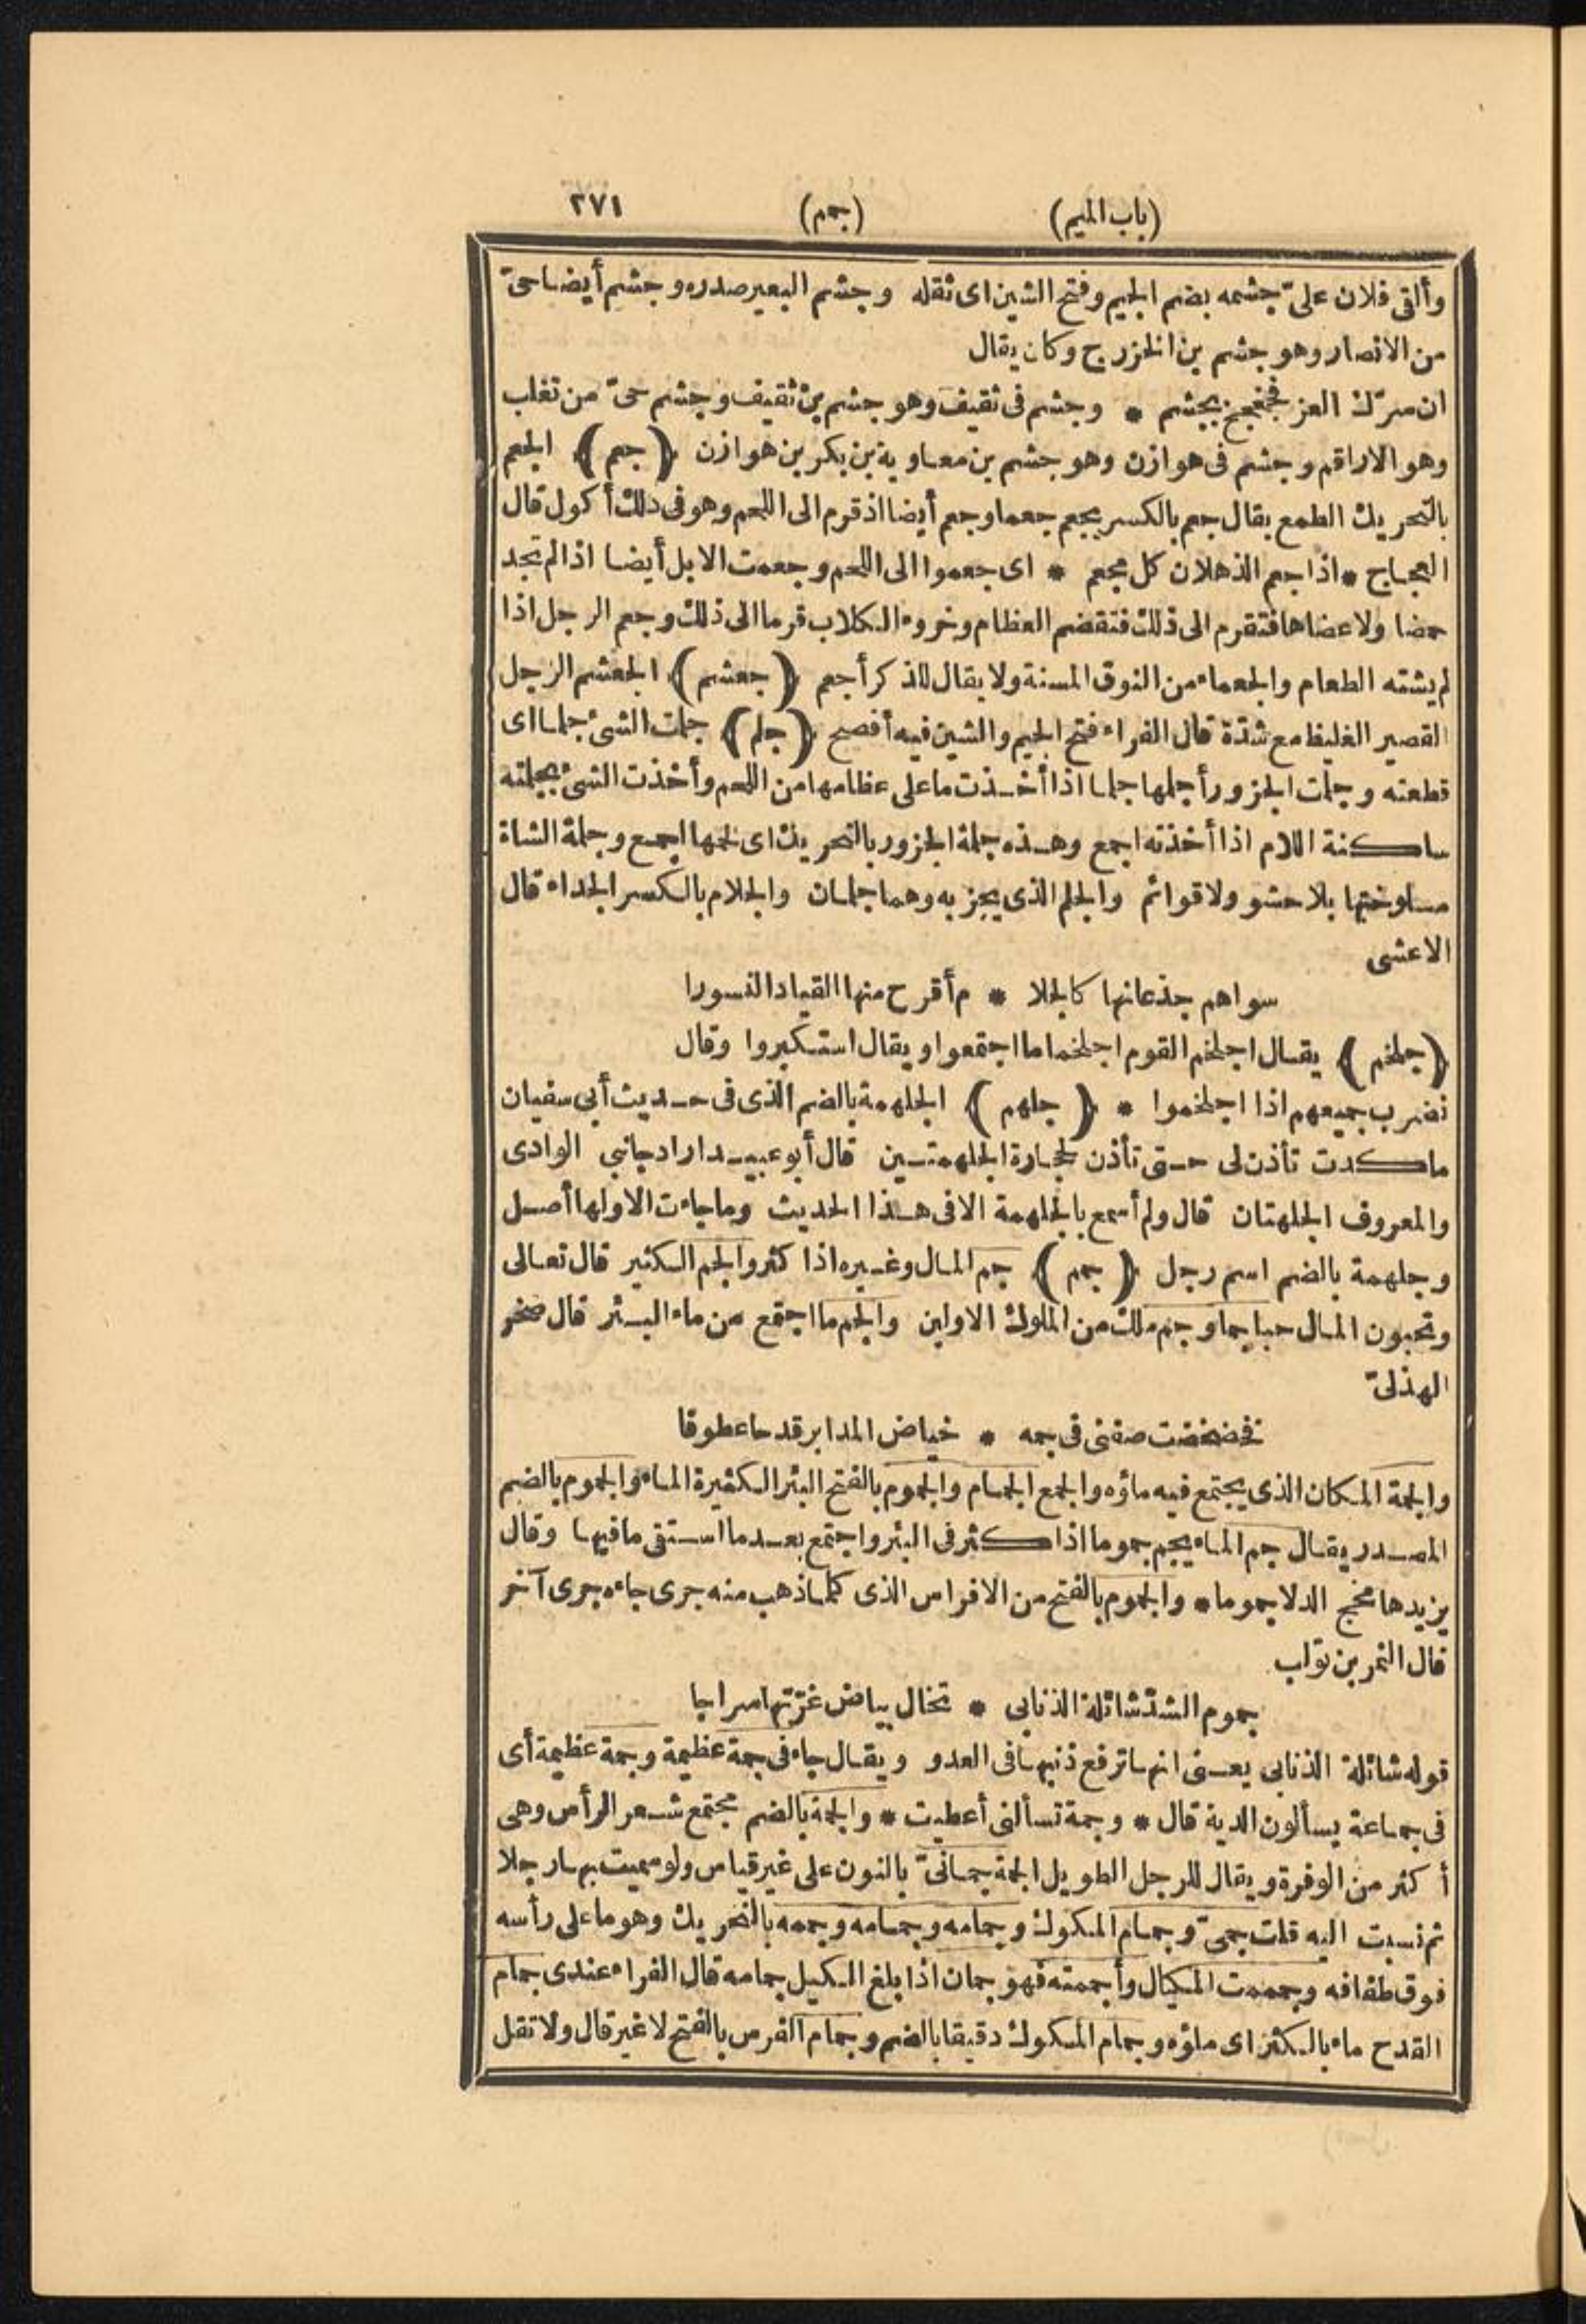 (باب الميم) (جمم) ٢٧١
وألقى فلان علىّ جشمه بضم الجيم وفتح الشين اى ثقله وجشم البعير صدره وجشم أيضا حىّ
من الانصار وهو جشم بن الخزرج وكان يقال
ان سرّك العز فجخجخ بجشم * وجشم فى ثقيف وهو جشم بن ثقيف وجشم حىّ من تغلب
وهو الاراقم وجشم فى هوازن وهو جشم بن معاوية بن بكر بن هوازن (جعم) الجعم
بالتحريك الطمع يقال جعم بالكسر يجعم جعما وجعم أيضا اذ قرم الى اللحم وهو فى ذلك أكول قال
العجاج * اذا جعم الذهلان كل مجعم * اى جعموا الى اللحم وجعمت الابل أيضا اذا لم تجد
حمضا ولا عضاها فتقرم الى ذلك فتقضم العظام وخروء الكلاب قرما الى ذلك وجعم الرجل اذا
لم يشته الطعام والجعماء من النوق المسنة ولا يقال للذكر أجعم (جعشم) الجعشم الرجل
القصير الغليظ مع شدّة قال الفراء فتح الجيم والشين فيه أفصح (جلم) جلمت الشئ جلما اى
قطعته وجلمت الجزور أجلمها جلما اذا أخذت ما على عظامها من اللحم وأخذت الشئ بجلمته
ساكنة اللام اذا أخذته اجمع وهذه جلمة الجزور بالتحريك اى لحمها اجمع وجلمة الشاة
مسلوختها بلا حشو ولا قوائم والجلم الذى يجز به وهما جلمان والجلام بالكسر الجداء قال
الاعشى
سواهم جذعانها كالجلا * م أقرح منها القياد النسورا
(جلخم) يقال اجلخم القوم اجلخماما اجتمعوا ويقال استكبروا وقال
نضرب جميعهم اذا اجلخموا * (جلهم) الجلهمة بالضم الذى فى حديث أبى سفيان
ماكدت تأذن لى حتى تأذن لحجارة الجلهمتين قال أبو عبيد اراد جانبي الوادى
والمعروف الجلهتان قال ولم أسمع بالجلهمة الا فى هذا الحديث وما جاءت الا ولها أصل
وجلهمة بالضم اسم رجل (جمم) جم المال وغيره اذا كثر والجم الكثير قال تعالى
وتحبون المال حبا جما وجم ملك من الملوك الاولين والجم ما اجتمع من ماء البئر قال صخر
الهذلىّ
فخضخضت صفنى فى جمه * خياض المدابر قدحا عطوفا
والجمة المكان الذى يجتمع فيه ماؤه والجمع الجمام والجموم بالفتح البئر الكثيرة الماء والجموم بالضم
المصدر يقال جم الماء يجم جموما اذا كثر فى البئر واجتمع بعد ما استقى ما فيها وقال
يزيدها مخج الدلا جموما * والجموم بالفتح من الافراس الذى كلما ذهب منه جرى جاءه جرى آخر
قال النمر بن تولب
جموم الشدّ شائلة الذنابى * تخال بياض غرّتها سراجا
قوله شائلة الذنابى يعنى انها ترفع ذنبها فى العدو ويقال جاء فى جمة عظيمة وجمة عظيمة أى
فى جماعة يسألون الدية قال * وجمة تسألنى أعطيت * والجمة بالضم مجتمع شعر الرأس وهى
أكثر من الوفرة ويقال للرجل الطويل الجمة جمانىّ بالنون على غير قياس ولو سميت بها رجلا
ثم نسبت اليه قلت جمىّ وجمام المكوك وجمامه وجمامه وجممه بالتحريك وهو ما على رأسه
فوق طفافه وجممت المكيال وأجممته فهو جمان اذا بلغ الكيل جمامه قال الفراء عندى جمام
القدح ماء بالكسر اى ملؤه وجمام المكوك دقيقا بالضم وجمام الفرس بالفتح لا غير قال ولا تقل